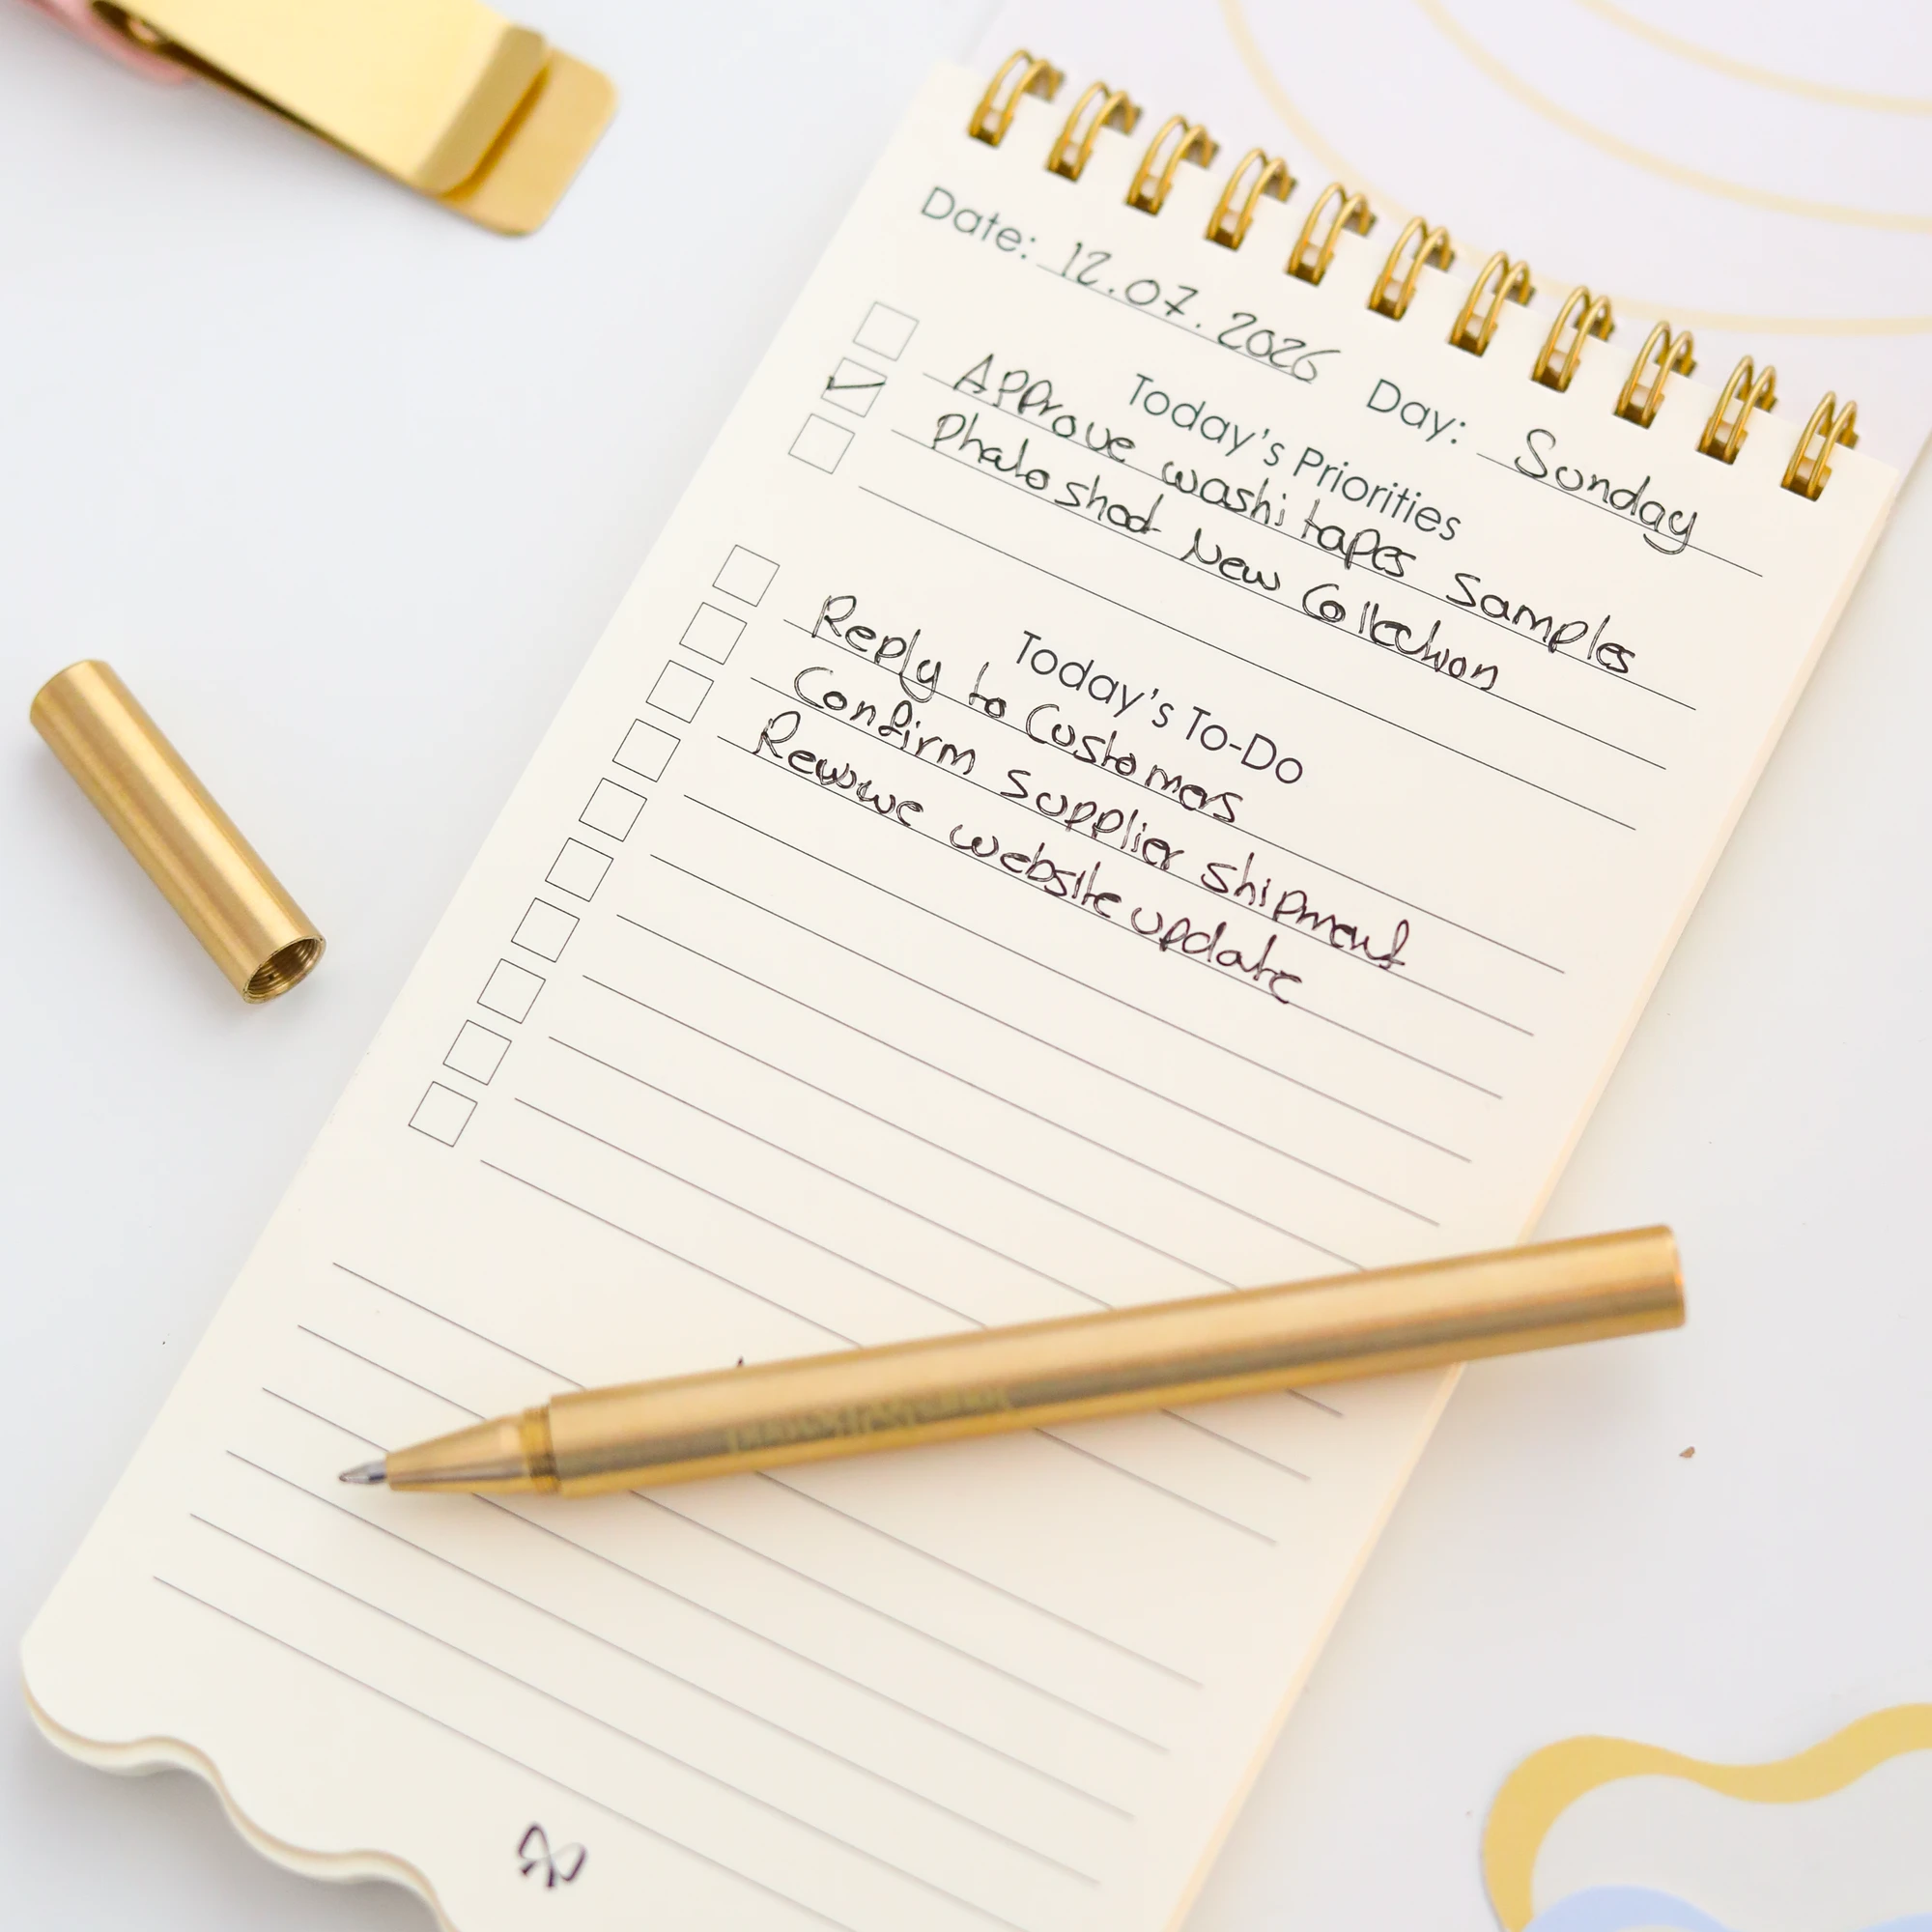 Date: 12.07.2026 Day: Sunday
Today's Priorities
Approve washi tapes Samples
Photoshoot New Collection
Today's To-Do
Reply to Customers
Confirm Supplier Shipment
website update